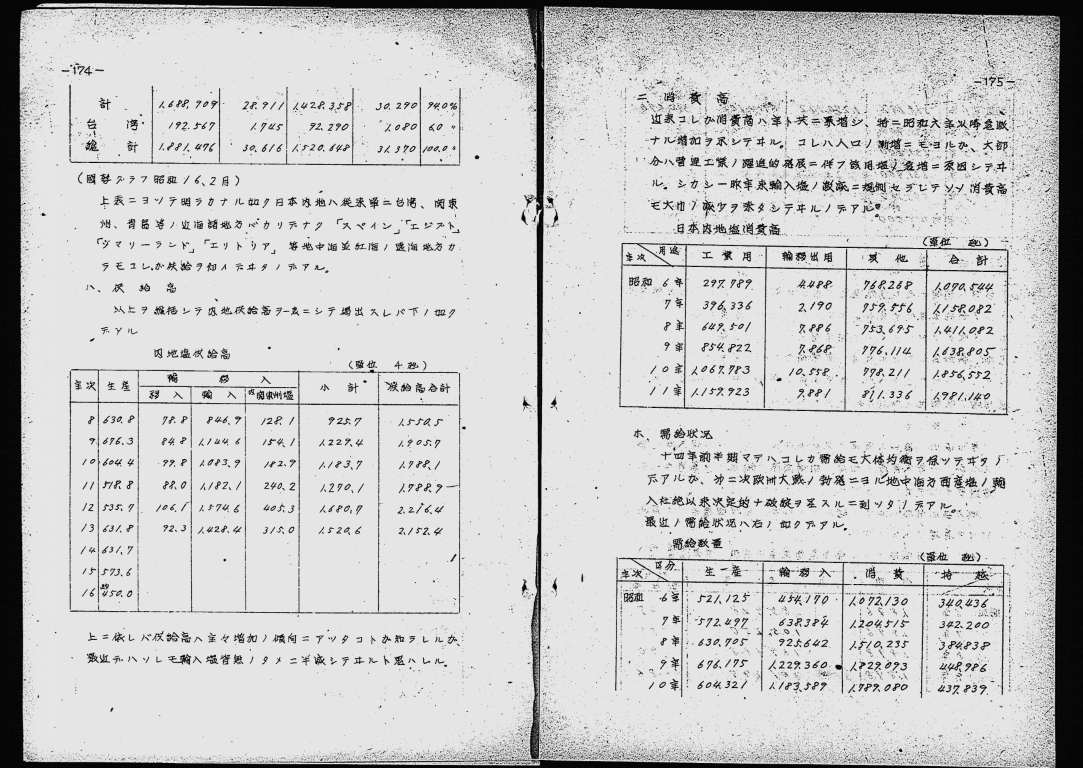 -174-
計 1,688,909 28,911 1,428,358 30,290 94.0%
台湾 192,567 1,745 92,290 1,080 6.0〃
総計 1,881,476 30,616 1,520,648 31,370 100.0〃
(國勢グラフ昭和16、2月)
上表ニヨツテ明ラカナル如ク日本内地ハ従来単ニ台湾、関東
州、青島等ノ近海諸地方バカリデナク「スペイン」「エジプト」
「ソマリーランド」「エリトリア」等地中海並紅海ノ遠海地方カ
ラモコレガ供給ヲ仰イデヰタノデアル。
ハ、供給高
以上ヲ総括シテ内地供給高ヲ一表ニシテ掲出スレバ下ノ如ク
デアル
内地塩供給高
(單位 千瓲)
年次 生産 輸移入 小計 供給高合計
移入 輸入 関東州塩
8 630.8 78.8 846.9 128.1 925.7 1,550.5
9 676.3 84.8 1,144.6 154.1 1,229.4 1,905.7
10 604.4 99.8 1,083.9 182.9 1,183.7 1,788.1
11 518.8 88.0 1,182.1 240.2 1,270.1 1,788.9
12 535.7 106.1 1,574.6 405.3 1,680.7 2,216.4
13 631.8 92.3 1,428.4 315.0 1,520.6 2,152.4
14 631.7
15 573.6
16 450.0
上ニ依レバ供給高ハ年々増加ノ傾向ニアツタコトガ知ラレルガ、
最近デハソレモ輸入塩皆無ノタメニ半減シテヰルト思ハレル。
-175-
二 消費高
近来コレガ消費高ハ年ト共ニ累増シ、特ニ昭和六年以降急激
ナル増加ヲ示シテヰル。コレハ人口ノ漸増ニモヨルガ、大部
分ハ曹達工業ノ躍進的発展ニ伴フ需用塩ノ急増ニ原因シテヰ
ル。シカシ一昨年来輸入塩ノ激減ニ規制セラレテソノ消費高
モ大巾ノ減少ヲ来タシテヰルノデアル。
日本内地塩消費高
(單位 瓲)
年次 用途 工業用 輸移出用 其他 合計
昭和 6年 297,789 4,488 768,268 1,070,544
7年 396,336 2,190 759,556 1,158,082
8年 649,501 7,886 753,695 1,411,082
9年 854,822 7,868 776,114 1,638,805
10年 1,067,783 10,558 778,211 1,856,552
11年 1,159,923 9,881 811,336 1,981,140
ホ、需給状況
十四年前半期マデハコレガ需給モ大体均衡ヲ保ツテヰタノ
デアルガ、第二次欧洲大戦ノ勃発ニヨル地中海方面産塩ノ輸
入杜絶以来決定的ナ破綻ヲ呈スルニ到ツタノデアル。
最近ノ需給状況ハ右ノ如クデアル。
需給数量
(單位 瓲)
年次 区分 生産 輸移入 消費 持越
昭和 6年 521,125 454,170 1,072,130 340,436
7年 572,497 638,384 1,204,515 342,200
8年 630,705 925,642 1,510,235 384,838
9年 676,175 1,229,360 1,829,093 448,986
10年 604,321 1,183,589 1,789,080 437,839